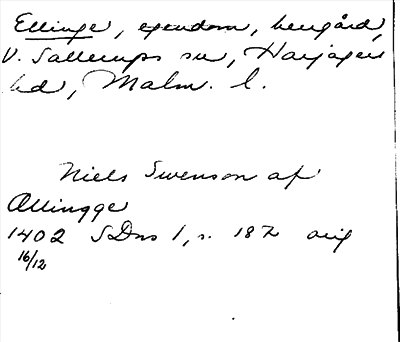 Ellinge, egendom, herrgård,
V. Sallerups sn, Harjagers
hd, Malm. l.
Niels Swenson af
Ællingge
1402 SDns 1, s. 182 orig
16/12